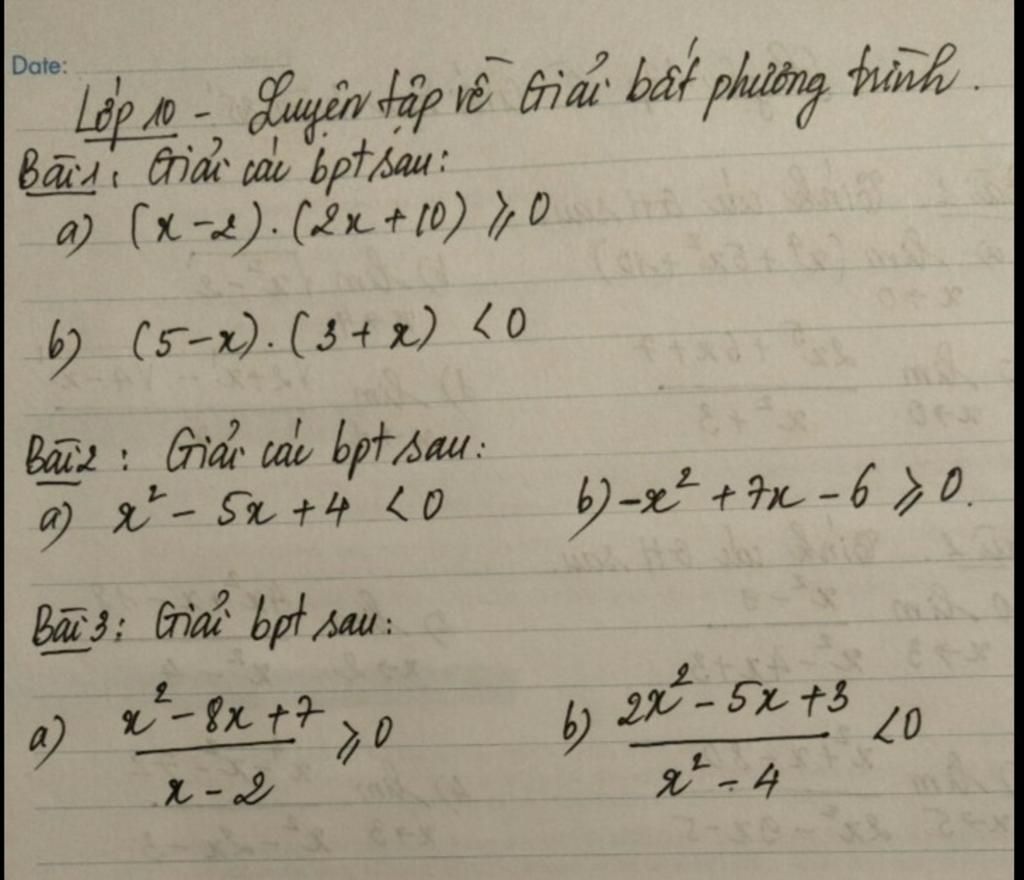 Date:
Lớp 10 - Luyện tập về Giải bất phương trình.
Bài 1: Giải các bpt sau:
a) (x-2).(2x+10) ⩾ 0
b) (5-x).(3+x) < 0
Bài 2: Giải các bpt sau:
a) x² - 5x + 4 < 0 b) -x² + 7x - 6 ⩾ 0.
Bài 3: Giải bpt sau:
a) (x² - 8x + 7)/(x - 2) ⩾ 0 b) (2x² - 5x + 3)/(x² - 4) < 0